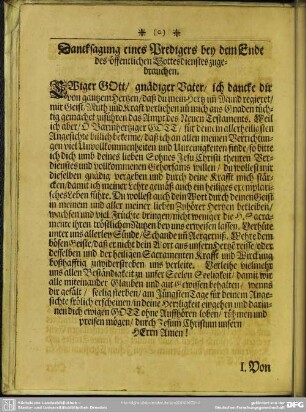 (o)
Dancksagung eines Predigers bey dem Ende
des öffentlichen Gottesdienstes zuge-
brauchen.
EWiger GOtt / gnädiger Vater / ich dancke dir
von gantzem Hertzen / daß du mein Hertz un Mund regieret /
mir Geist Muth und Krafft verliehen un mich aus Gnaden tüch-
tig gemachet zuführen das Ampt des Neuen Testaments. Weil
ich aber / O Barmhertziger GOTT / für deinem allerheiligsten
Angesichte billich erkenne / daß sich an allen meinen Verrichtun-
gen viel Unvollkommenheiten und Unreinigkeiten finde / so bitte
ich dich umb deines lieben Sohnes JEsu Christi theuren Ver-
dienstes und vollkommenen Gehorsams willen / du wollest mir
dieselben gnädig vergeben und durch deine Krafft mich stär-
cken / damit ich meiner Lehre gemäß auch ein heiliges exemplari-
sches Leben führe. Du wollest auch dein Wort durch deinen Geist
in meinen und aller meiner lieben Zuhörer Hertzen bekleiben /
wachsen und viel Früchte bringen / nicht weniger die H. Sacra-
mente ihren tröstlichen Nutzen bey uns erweisen lassen. Verhüte
unter uns allerley Sünde / Schande un Aergernis. Wehre dem
bösen Geiste / daß er nicht dein Wort aus unserm Hertzen reisse / oder
desselben und der heiligen Sacramenten Krafft und Würckung
boßhafftig zuwiderstreben uns verleite. Verleihe vielmehr
uns allen Beständigkeit zu unser Seelen Seeligkeit / damit wir
alle miteinander Glauben und gut Gewissen behalten / wenns
dir gefält / seelig sterben / am Jüngsten Tage für deinem Ange-
sichte frölich erscheinen / in deine Herrligkeit eingehen und darin-
nen dich ewigen GOTT ohne Auffhören loben / rühmen und
preisen mögen / durch JEsum Christum unsern
HErrn Amen!
I. Von